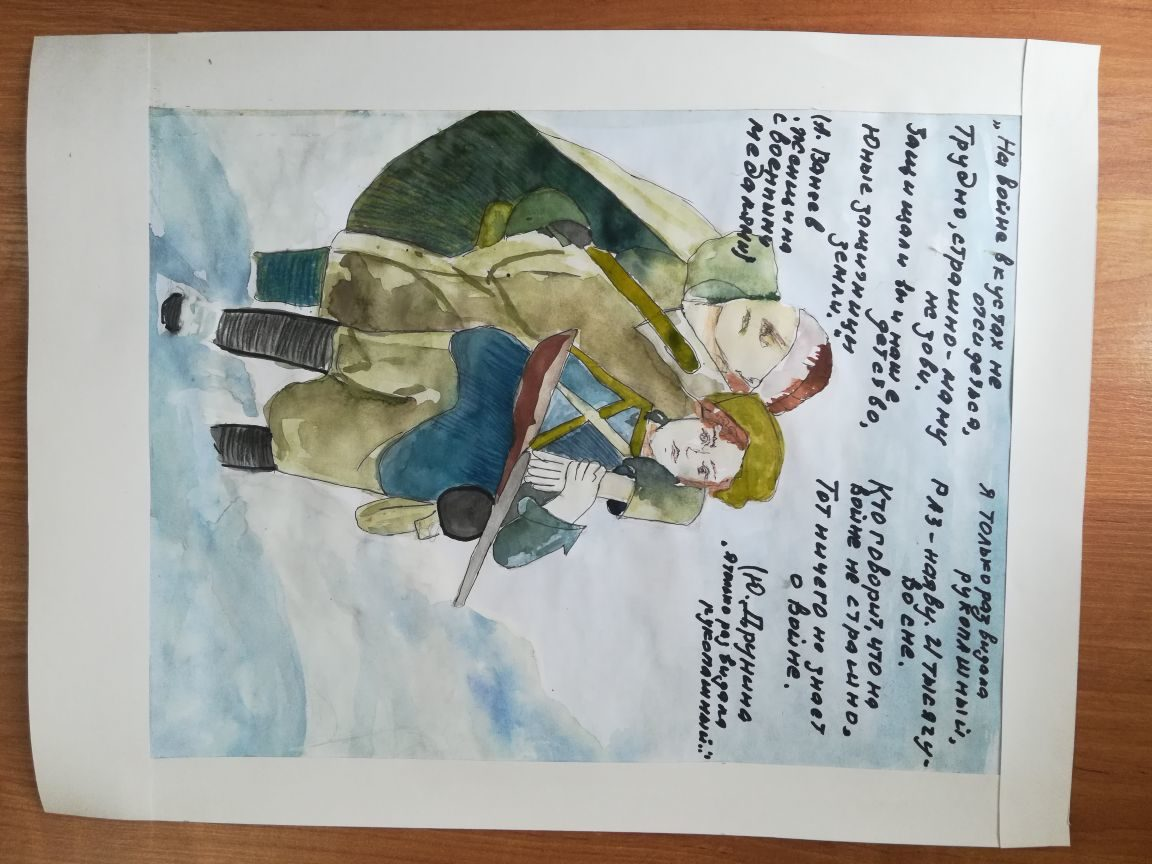 „На войне в кустах не
отсидевся,
Трудно, страшно-маму
не зови.
Защищали вы и наше
детство,
Юные защитницы
земли."
(А. Ванеев
„Женщина
с военными
медалями)
Я только раз видала
рукопашный,
Раз-наяву. И тысячу-
во сне.
Кто говорит, что на
войне не страшно,
Тот ничего не знает
о войне.
(Ю. Друнина
„Я только раз видала
рукопашный."